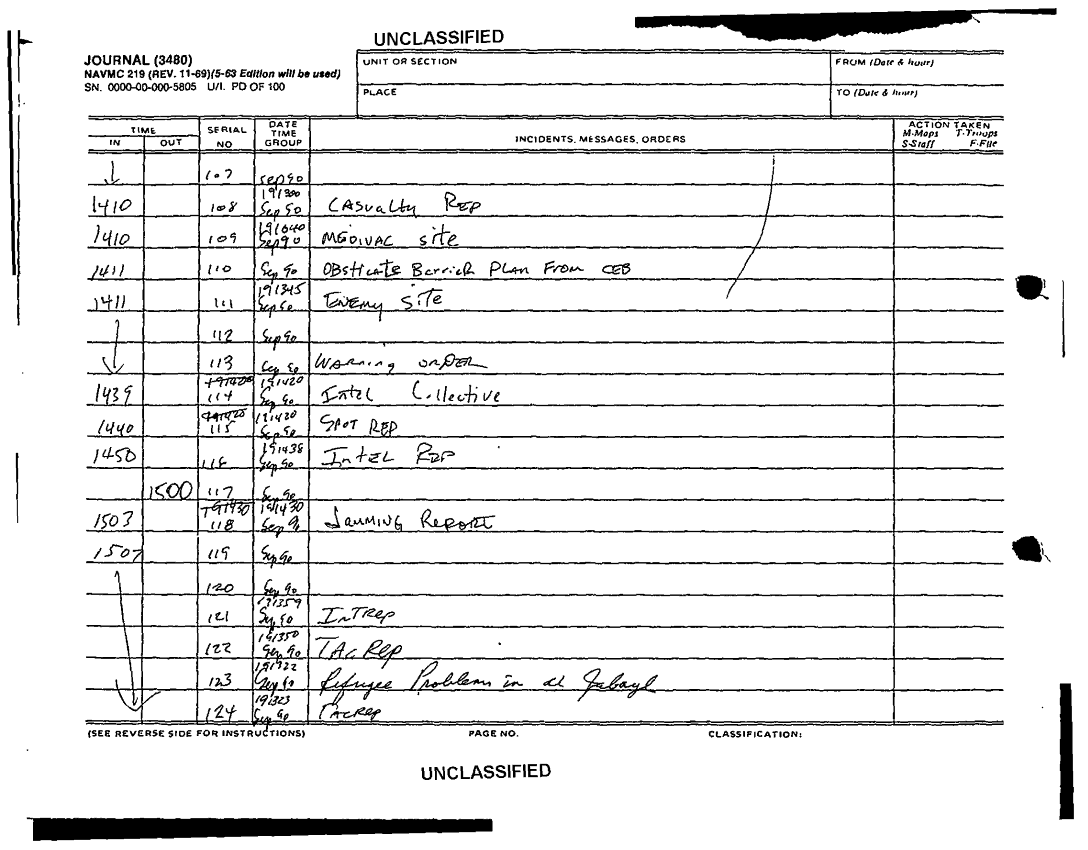 UNCLASSIFIED
JOURNAL (3480)
NAVMC 219 (REV. 11-69)(5-63 Edition will be used)
SN. 0000-00-000-5805 U/I. PD OF 100
UNIT OR SECTION
FROM (Date & hour)
PLACE
TO (Date & hour)
TIME
IN OUT
SERIAL NO
DATE TIME GROUP
INCIDENTS, MESSAGES, ORDERS
ACTION TAKEN
M-Maps T-Troops
S-Staff F-File
107 Sep 90
1410 108 191300 Sep 90 Casualty Rep
1410 109 191040 Sep 90 MEDIVAC site
1411 110 Sep 90 Obsticate Barrier Plan From CEB
1411 111 191345 Sep 90 Enemy site
112 Sep 90
113 Sep 90 Warning order
1439 191420 114 191420 Sep 90 Intel Collective
1440 191420 115 191420 Sep 90 SPOT REP
1450 116 191438 Sep 90 Intel Rep
1500 117 Sep 90
1503 191430 118 191430 Sep 90 Jamming Report
1507 119 Sep 90
120 Sep 90
121 191359 Sep 90 InTRep
122 191350 Sep 90 TAC Rep
123 191922 Sep 90 Refugee Problems in al Jabayl
124 191323 Sep 90 TACREP
(SEE REVERSE SIDE FOR INSTRUCTIONS)
PAGE NO.
CLASSIFICATION:
UNCLASSIFIED